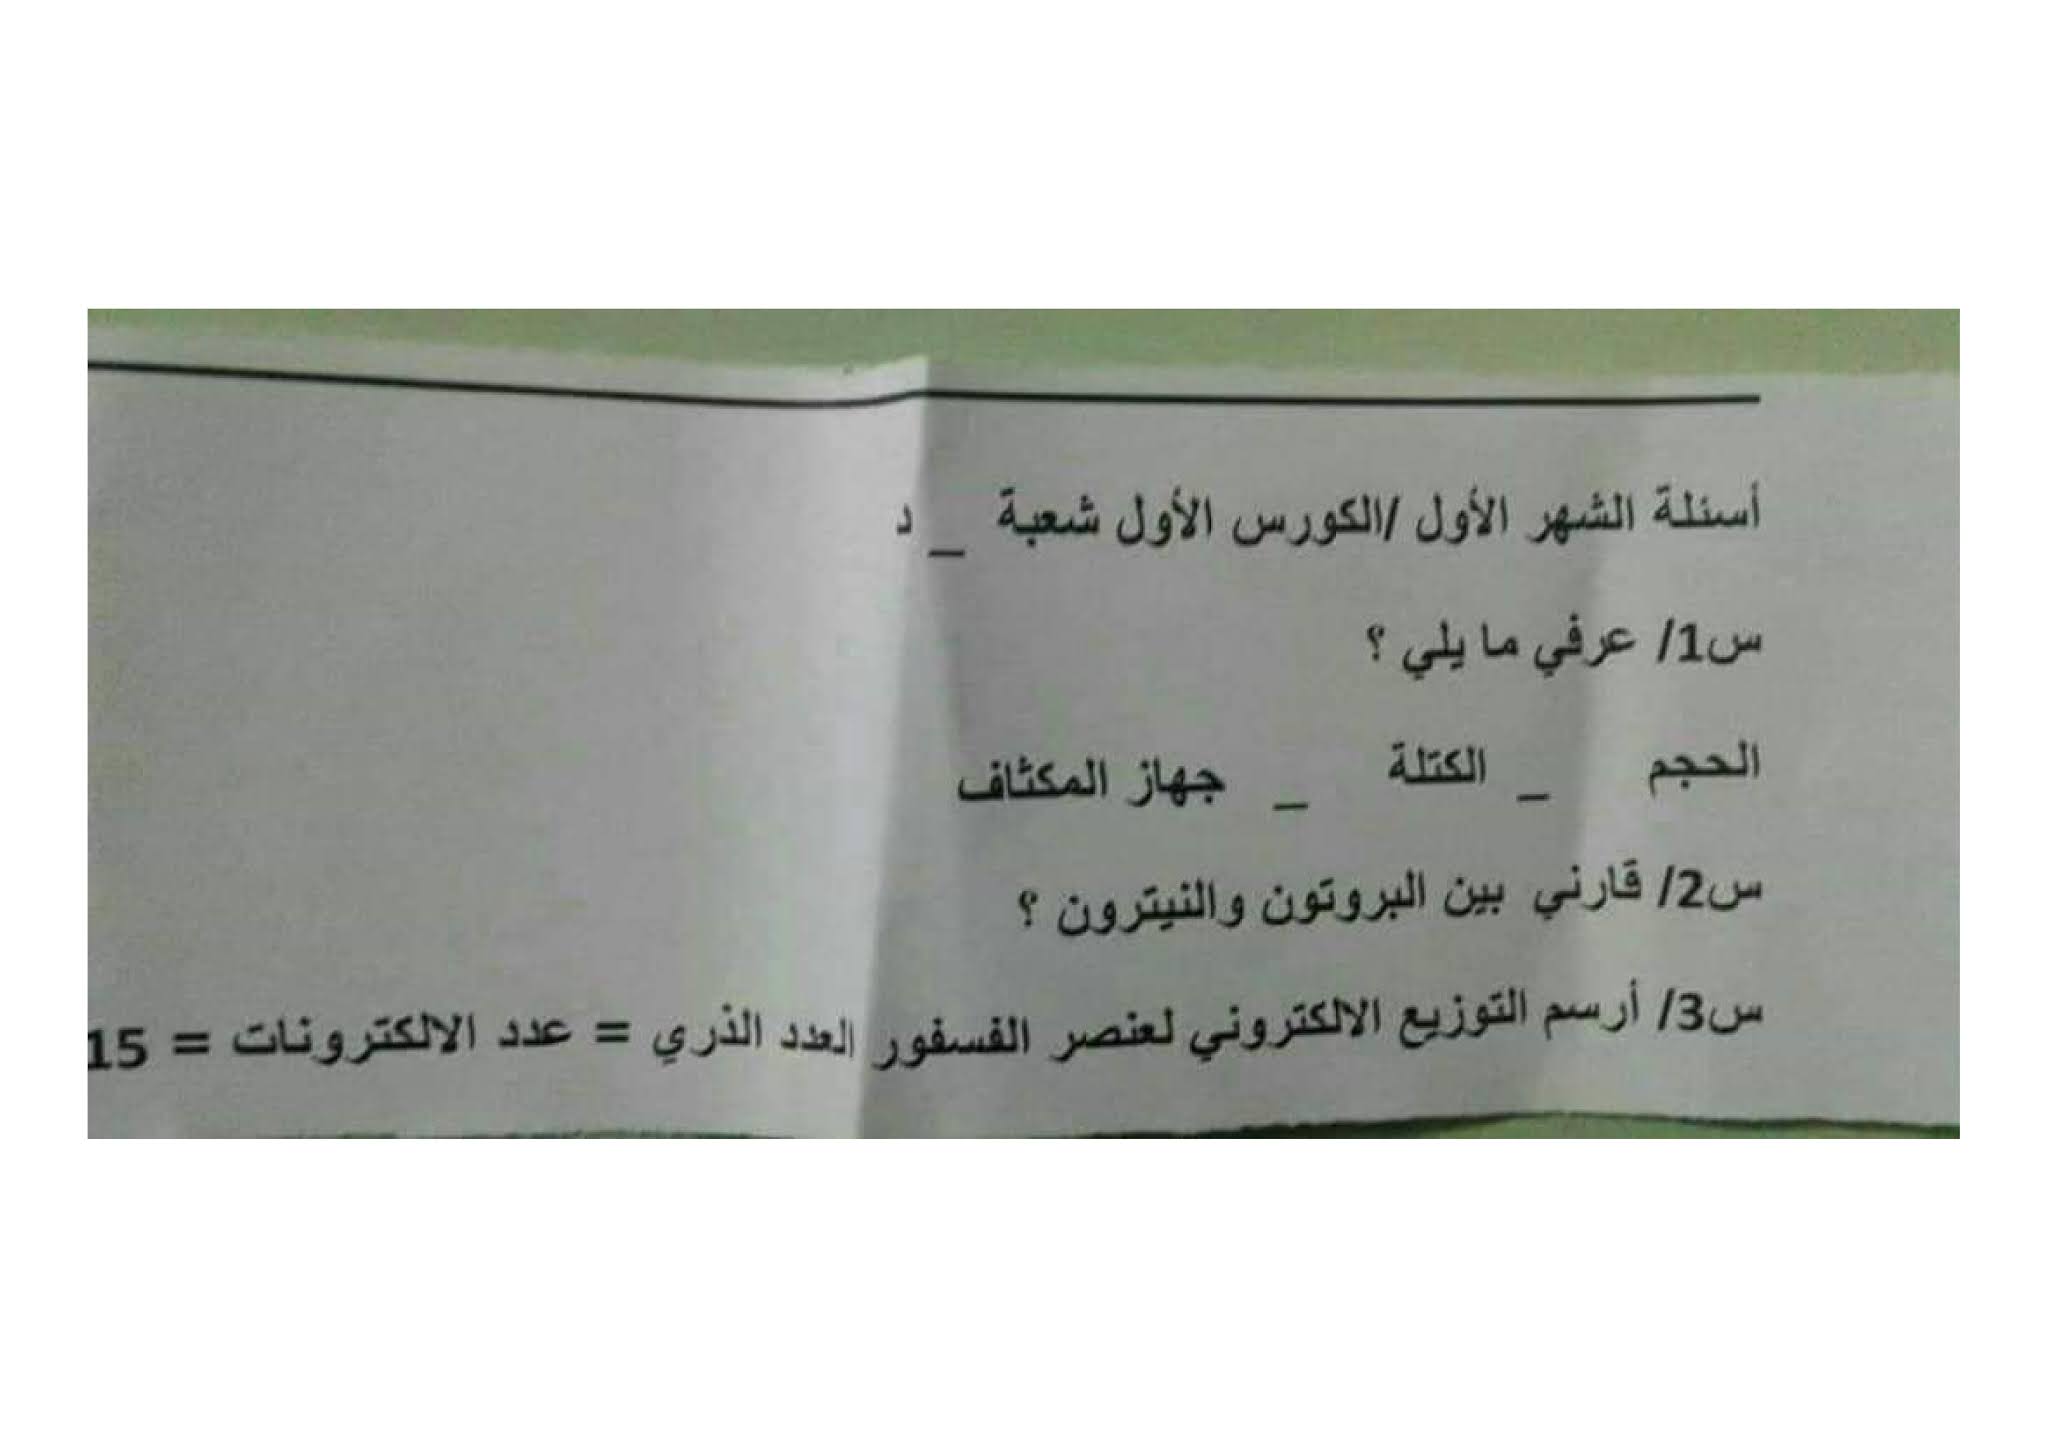 أسئلة الشهر الأول /الكورس الأول شعبة _ د
س1/ عرفي ما يلي ؟
الحجم _ الكتلة _ جهاز المكثاف
س2/ قارني بين البروتون والنيترون ؟
س3/ أرسم التوزيع الالكتروني لعنصر الفسفور العدد الذري = عدد الالكترونات = 15